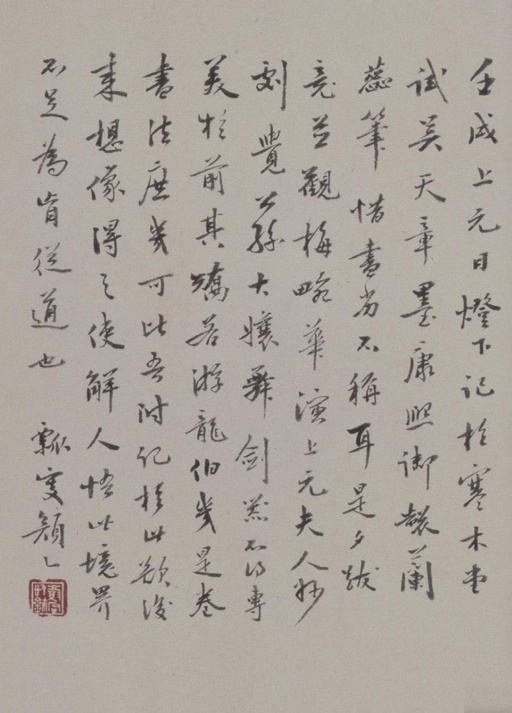 壬戌上元日燈下記於寒木堂
試吳天章墨康熙御製蘭
蕊筆惜書劣不稱耳是夕跋
竟並觀梅畹華演上元夫人妙
劇覺公孫大孃舞劍器不得專
美於前其矯若游龍伯幾是卷
書法庶幾可比吾附記於此欲後
來想像得之使解人悟此境界
不足為肯從道也 瓢叟顏